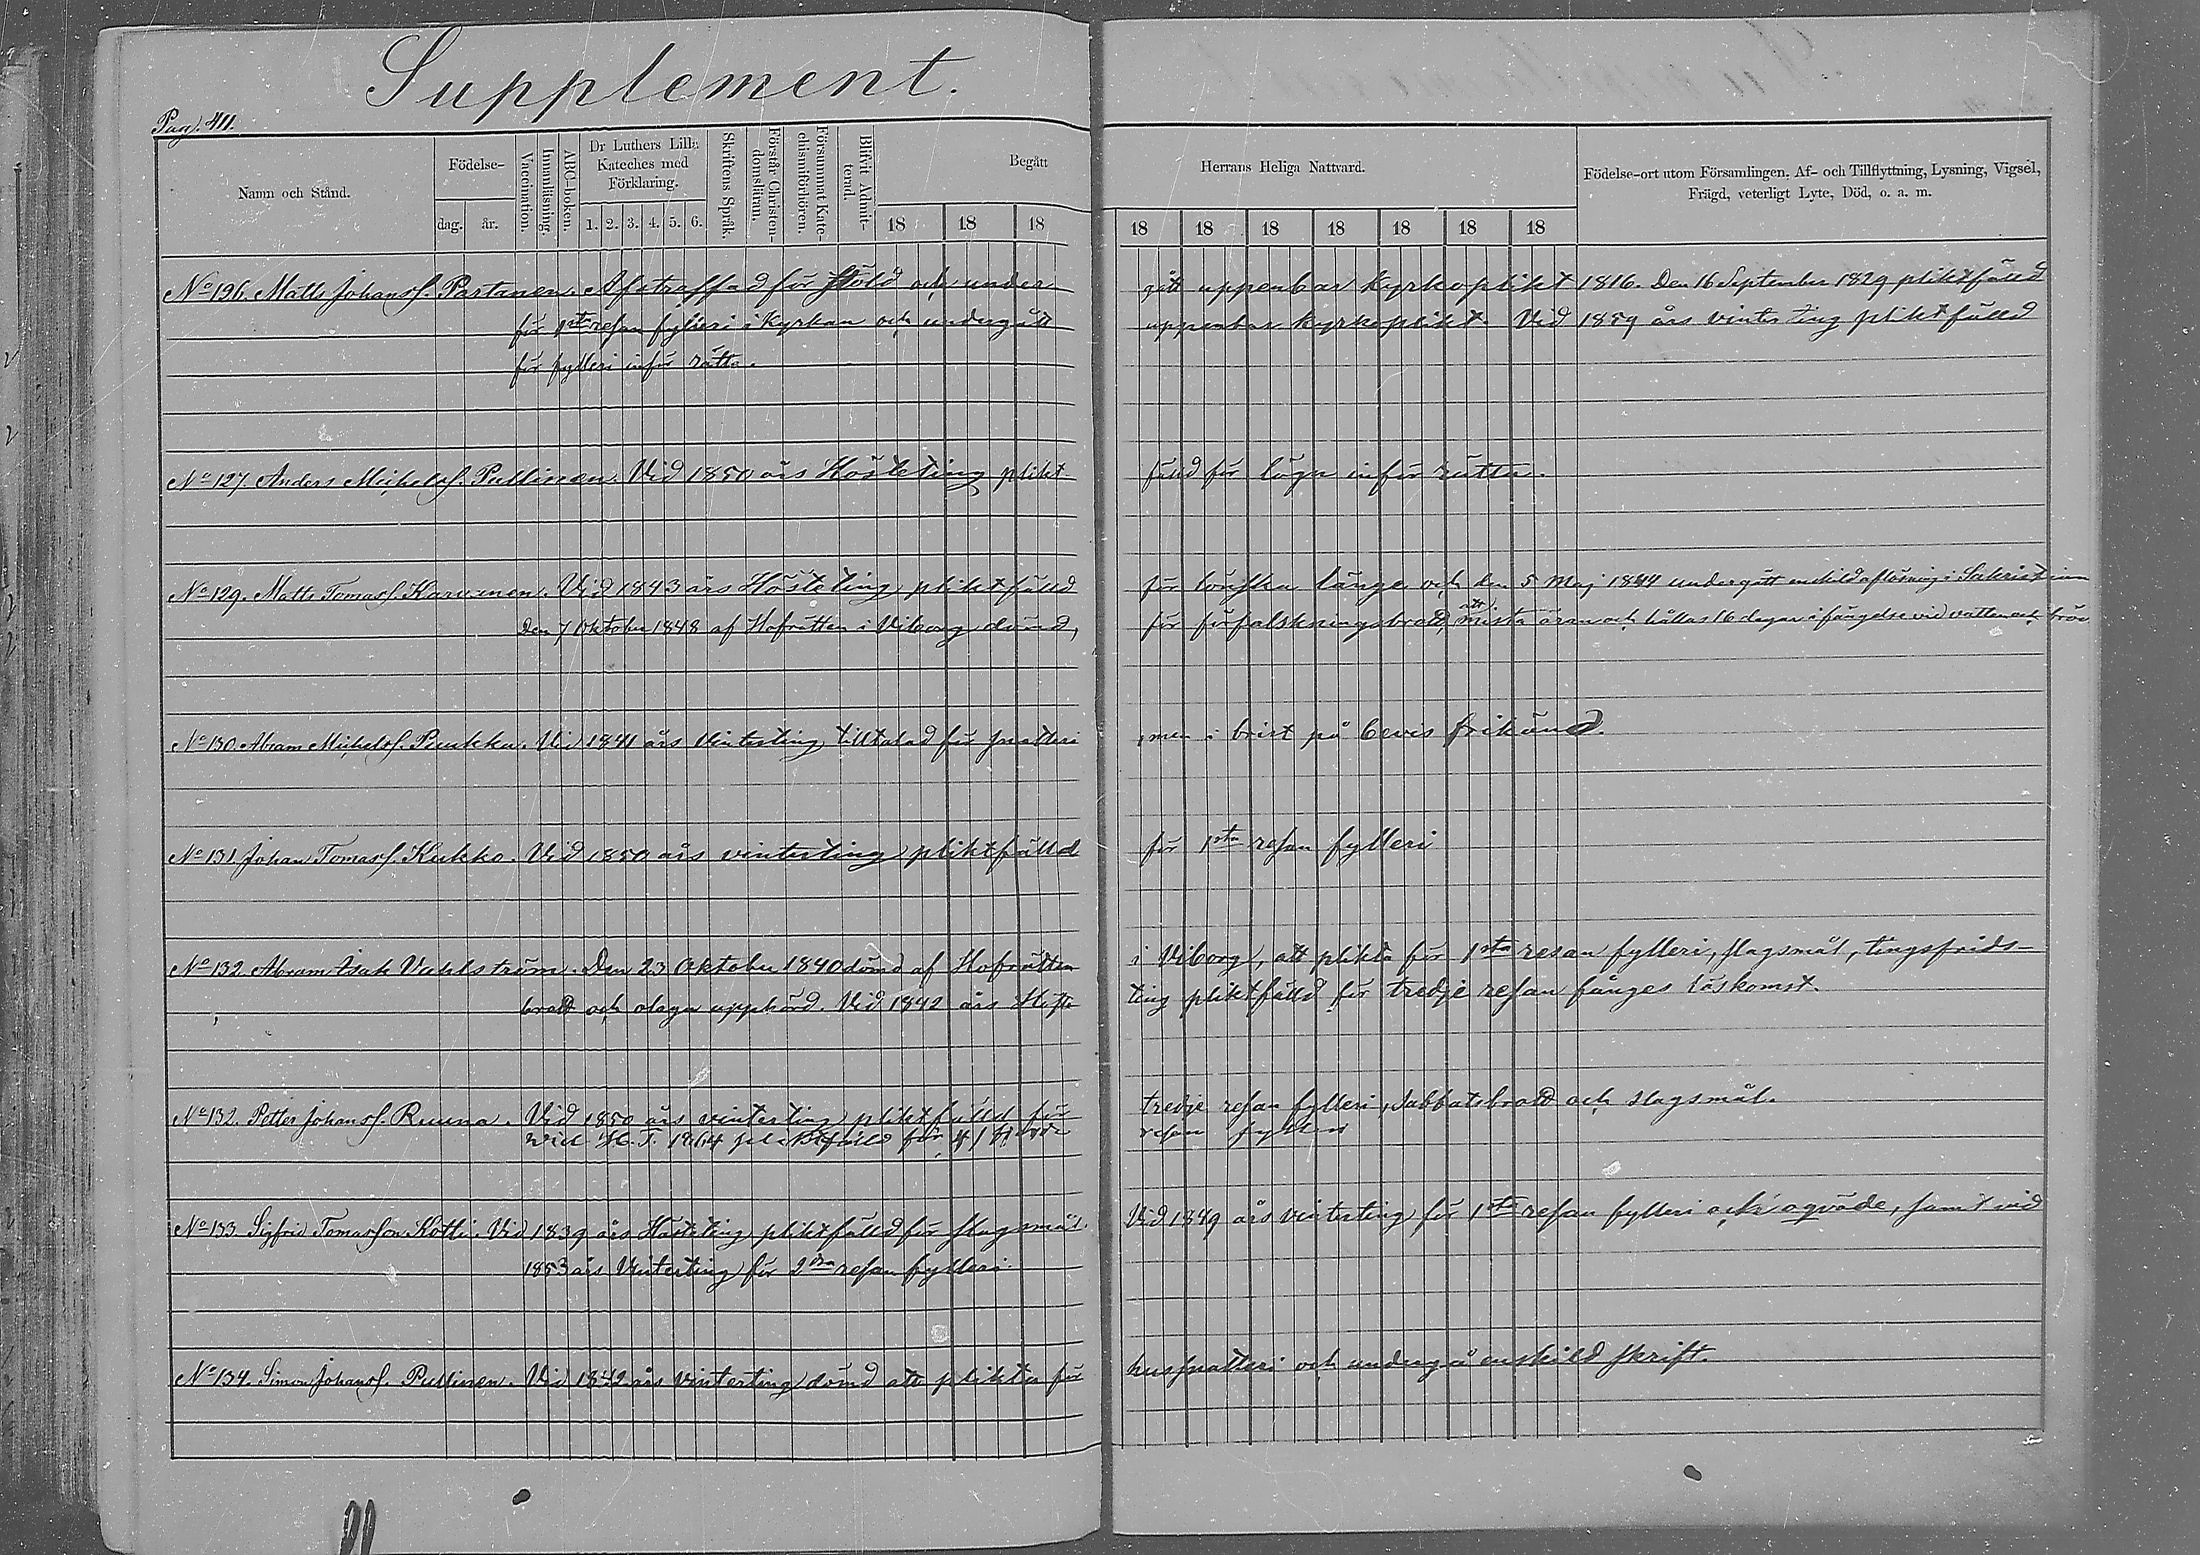 Supplement.
Pag. 411.
Namn och Stånd.
Födelse-
dag.
år.
Vaccination.
Innanläsning.
ABC-boken.
Dr Luthers Lilla
Kateches med
Förklaring.
1. 2. 3. 4. 5. 6.
Skriftens Språk.
Förstår Christen-
domsläran.
Försummat Kate-
chismiförhören.
Blifvit Admit-
terad.
Begått
Herrans Heliga Nattvard.
18 18 18 18 18 18 18 18 18 18
Födelse-ort utom Församlingen. Af- och Tillflyttning, Lysning, Vigsel,
Frägd, veterligt Lyte, Död, o. a. m.
No 126. Matts Johanss. Partanen. Afstraffad för stöld och under gått uppenbar kyrkoplikt 1816. Den 16 September 1829 pliktfälld
för 1sta resan fylleri i kyrkan och undergått uppenbar kyrkoplikt. Vid 1859 års vinterting pliktfälld
för fylleri inför rätta.
No 127. Anders Michelss. Pullinen. Vid 1850 års Hösteting plikt fälld för lögn inför rätta.
No 129. Matts Tomass. Karvinen. Vid 1843 års Hösteting pliktfälld för lönska länge och den 5 Maj 1844 undergått enskild aflösning i Sakristian
Den 7 Oktober 1848 af Hofrätten i Viborg dömd, för förfalskningsbrott, att mista äran och hållas 16 dagar i fängelse vid vatten och bröd
No 130. Abram Michelss. Puukka. Vid 1841 års Vinterting tilltalad för snatteri, men i brist på bevis frikänd.
No 131. Johan Tomass. Kukko. Vid 1850 års vinterting pliktfälld för 1sta resan fylleri
No 132. Abram Isak Vahlström. Den 23 Oktober 1840 dömd af Hofrätten i Viborg, att plikta för 1sta resan fylleri, slagsmål, tingsfrids-
brott och olaga upphörd. Vid 1842 års Höste ting pliktfälld för tredje resan fånges löskomst.
No 132. Petter Johanss. Ruuna. Vid 1850 års vinterting pliktfälld för tredje resan fylleri, Sabbatsbrott och slagsmål.
vid H. T. 1864 pliktfälld för resan fylleri
No 133. Sigfrid Tomasson Kotti. Vid 1839 års Hösteting pliktfälld för slagsmål. Vid 1849 års vinterting för 1sta resan fylleri och oqväde, samt vid
1853 års Vinterting för 2dra resan fylleri.
No 134. Simon Johanss. Pullinen. Vid 1842 års Vinterting dömd att plikta för hussnatteri och undergå enskild skrift.